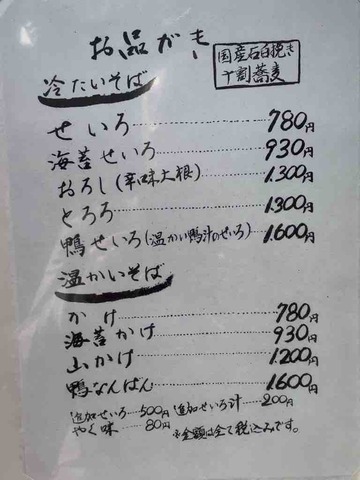 お品がき
国産石臼挽き
十割蕎麦
冷たいそば
せいろ 780円
海苔せいろ 930円
おろし(辛味大根) 1.300円
とろろ 1.300円
鴨せいろ(温かい鴨汁のせいろ) 1.600円
温かいそば
かけ 780円
海苔かけ 930円
山かけ 1.200円
鴨なんばん 1.600円
追加せいろ 500円 追加せいろ汁 200円
やく味 80円 ※金額は全て税込みです。